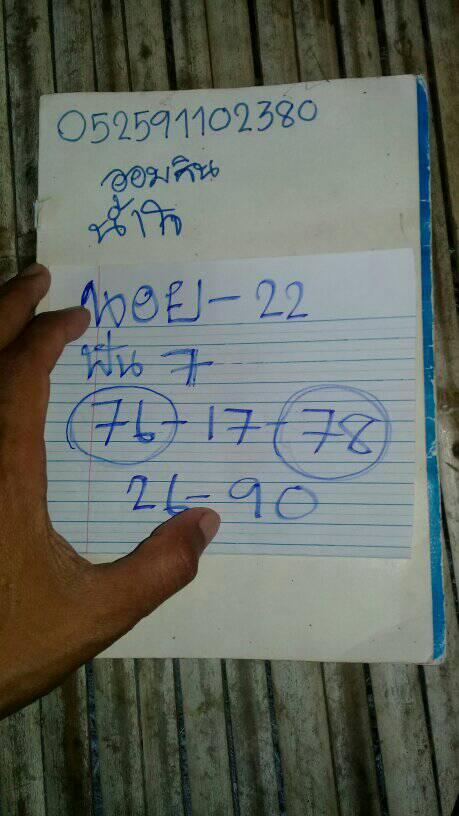 052591102380
ออมสิน
น้ำใจ
หอย - 22
ฟัน 7
76 - 17 - 78
26 - 90